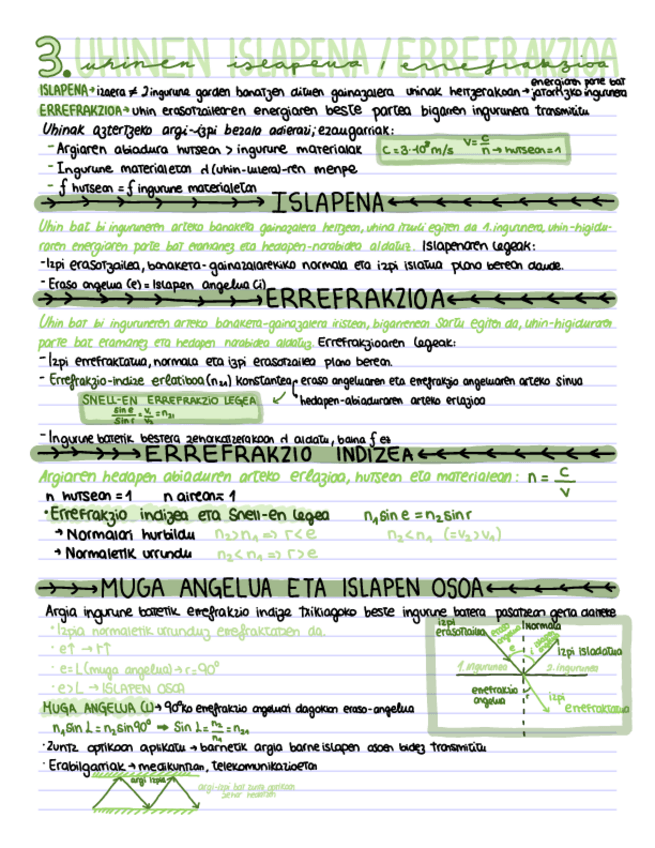 3. UHINEN ISLAPENA / ERREFRAKZIOA
uhinen islapena / errefrakzioa
ISLAPENA → izaera ≠ 2 ingurune garden banatzen dituen gainazalera uhinak heltzerakoan → energiaren parte bat jatorrizko ingurunera
ERREFRAKZIOA → uhin erasotzailearen energiaren beste partea bigarren ingurunera transmititu
Uhinak aztertzeko argi-izpi bezala adierazi; ezaugarriak:
- Argiaren abiadura hutsean > ingurune materialak C = 3·10⁸ m/s V = c/n → hutsean = 1
- Ingurune materialetan λ (uhin-luzera)-ren menpe
- f hutsean = f ingurune materialetan
ISLAPENA
Uhin bat bi inguruneren arteko banaketa gainazalera heltzean, uhina itzuli egiten da 1. ingurunera, uhin-higidu-
raren energiaren parte bat eramanez eta hedapen-norabidea aldatuz. Islapenaren legeak:
- Izpi erasotzailea, banaketa-gainazalarekiko normala eta izpi islatua plano berean daude.
- Eraso angelua (e) = Islapen angelua (i)
ERREFRAKZIOA
Uhin bat bi inguruneren arteko banaketa-gainazalera iristean, bigarrenean sartu egiten da, uhin-higiduraren
parte bat eramanez eta hedapen norabidea aldatuz. Errefrakzioaren legeak:
- Izpi errefraktatua, normala eta izpi erasotzailea plano berean.
- Errefrakzio-indize erlatiboa (n₂₁) konstantea eraso angeluaren eta errefrakzio angeluaren arteko sinua
SNELL-EN ERREFRAKZIO LEGEA ↙ hedapen-abiaduraren arteko erlazioa
sin e / sin r = v₁ / v₂ = n₂₁
- Ingurune batetik bestera zeharkatzerakoan λ aldatu, baina f ez
ERREFRAKZIO INDIZEA
Argiaren hedapen abiaduren arteko erlazioa, hutsean eta materialean: n = C / V
n hutsean = 1 n airean ≈ 1
• Errefrakzio indizea eta Snell-en legea n₁ sin e = n₂ sin r
→ Normalari hurbildu n₂ > n₁ => r < e n₂ < n₁ (= v₂ > v₁)
→ Normaletik urrundu n₂ < n₁ => r > e
MUGA ANGELUA ETA ISLAPEN OSOA
Argia ingurune batetik errefrakzio indize txikiagoko beste ingurune batera pasatzean gerta daiteke
· Izpia normaletik urrunduz errefraktatzen da.
· e↑ → r↑
· e = L (muga angelua) → r = 90°
· e > L → ISLAPEN OSOA
izpi erasotzailea
eraso angelua
Normala
islapen angelua
e
i
izpi isladatua
1. ingurunea
2. ingurunea
errefrakzio angelua
r
izpi errefraktatua
MUGA ANGELUA (L) → 90°ko errefrakzio angeluari dagokion eraso-angelua
n₁ sin L = n₂ sin 90° ⇒ Sin L = n₂ / n₁ = n₂₁
· Zuntz optikoan aplikatu → barnetik argia barne islapen osoen bidez transmititu
· Erabilgarriak → medikuntzan, telekomunikazioetan
argi izpia
argi-izpi bat zuntz optikoan
zehar hedatzen